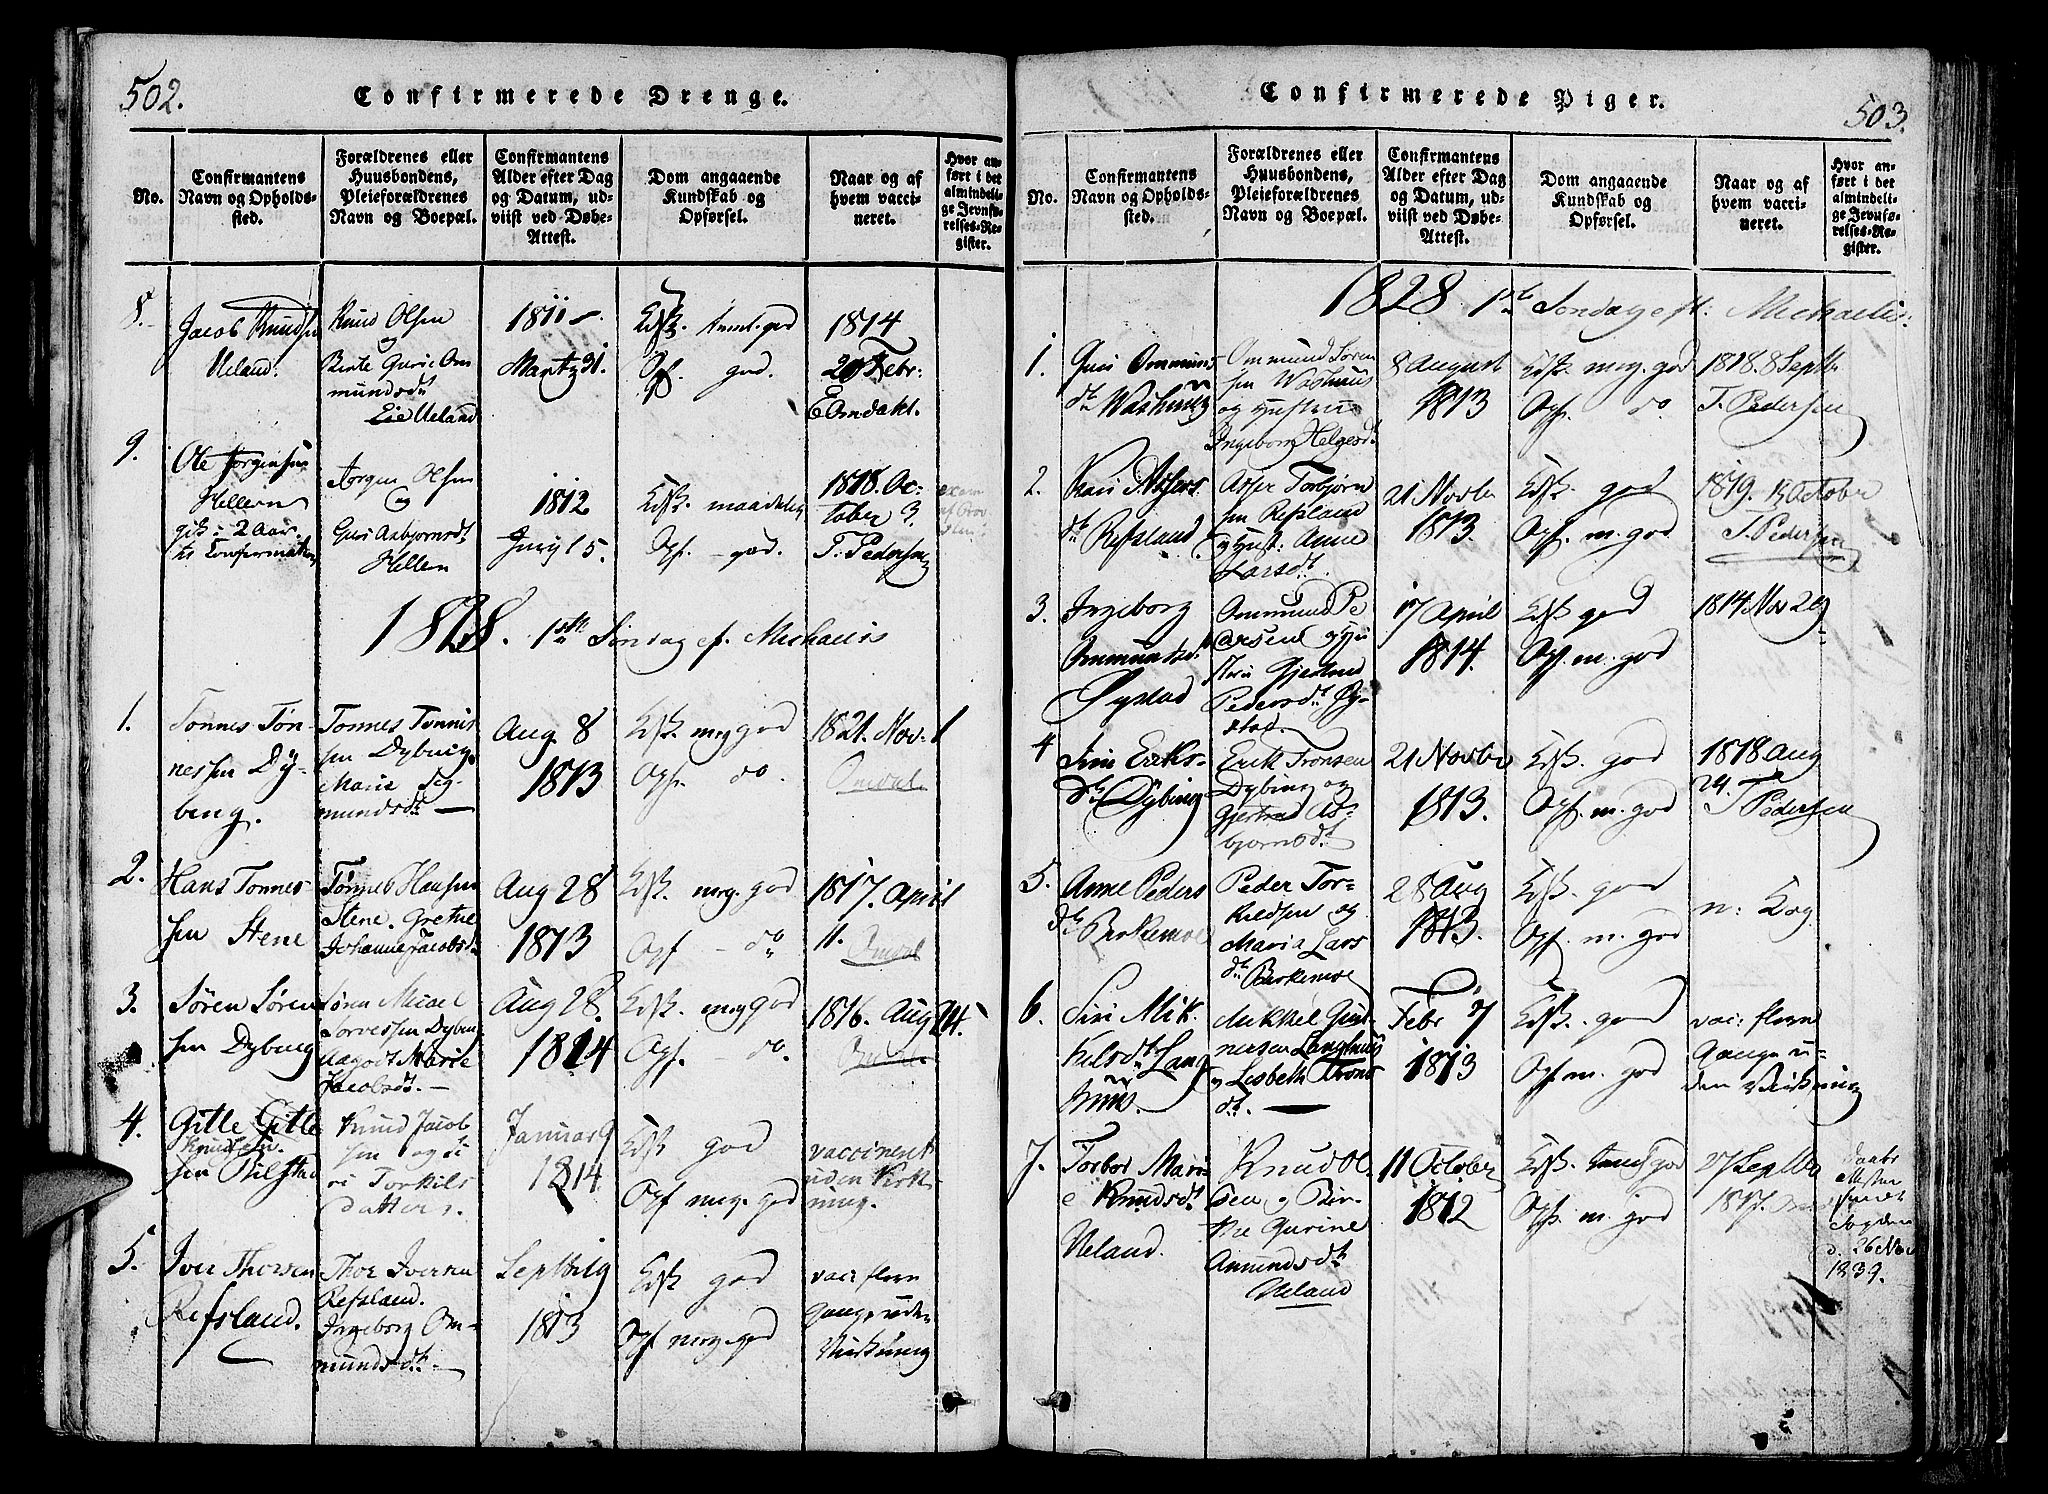 502.
Confirmerede Drenge.
No.
Confirmantens
Navn og Opholds-
sted.
Forældrenes eller
Huusbondens,
Pleieforældrenes
Navn og Boepæl.
Confirmantens
Alder efter Dag
og Datum, ud-
viist ved Døbe-
Attest.
Dom angaaende
Kundskab og
Opførsel.
Naar og af
hvem vacci-
neret.
Hvor an-
ført i det
almindeli-
ge Jevnfø-
relses-Re-
gister.
8.
Jacob Knudsen
Ueland.
Knud Olsen
og
Berte Gurie Om
mundsdt
Lie Ueland
1811
Martz 31.
Kdsk. teml. god
Opf. god.
1814
20 Febr:
E Omdahl.
9.
Ole Jørgensen
Hellern
gik i 2 Aar
til Confirmation
Jørgen Olsen
og
Guri Asbjørnsdt
Hellern
1812
Juny 15.
Kdsk. maadelig
Opf. - god.
1818. Oc-
tober 3.
T. Pedersen
1828. 1ste Søndag ef. Michaelis
1.
Tønnes Tøn-
nessen Dy-
bing.
Tønnes Tønnis
sen Dybing,
Marie Sig-
mundsdt
Aug. 8
1813
Kdsk. meg god
Opf. do.
1821. Nov. 1
Omdal
2.
Hans Tønnes-
sen Stene
Tønnes Hansen
Stene. Grethe
Johanne Jacobsdt
Aug 28
1813
Kdsk. meg. god
Opf - do
1817. April
11. Omdal
3.
Søren Søren
sen Dybing
Søren Mikael
Torvessen Dybing
Aagodt Marie
Jacobsdt. -
Aug 28.
1814
Kdsk. meg god
Opf. - do.
1816. Aug 24.
Omdal
4.
Gitle Gitle
Knudsen.
sen Rilstad
Knud Jacob
sen og Si
ri Torkils
datter.
Januar 9
1814
Kdsk god
Opf meg. god
vaccineret
uden Virk-
ning.
5.
Iver Thorsen
Refsland.
Thor Iversen
Refsland.
Ingeborg Om-
mundsdt. -
1813
Kdsk god
Opf meg. god
vac: flere
Gange uden
Virkning
503.
Confirmerede Piger.
No.
Confirmantens
Navn og Opholds-
sted.
Forældrenes eller
Huusbondens,
Pleieforældrenes
Navn og Boepæl.
Confirmantens
Alder efter Dag
og Datum, ud-
viist ved Døbe-
Attest.
Dom angaaende
Kundskab og
Opførsel.
Naar og af
hvem vacci-
neret.
Hvor an-
ført i det
almindeli-
ge Jevnfø-
relses-Re-
gister.
1828 1ste Søndag eft. Michaelis.
1.
Guri Ommunds
dt Washuus
Ommund Søren
sen Washuus
og Hustru
Ingeborg Helgesdt
8 August
1813
Kdsk. meg. god
Opf. do
1818. 8 Septb.
T. Pedersen
2.
Kari Assers
dt Refsland
Asser Torbjørn
sen Refsland
og Hust: Anne
Larsdt.
21 Novbr
1813.
Kdsk. god
Opf. m. god
1819. 13 October
T. Pedersen
3.
Ingeborg
Ommundsdt
Øystad
Ommund Pe
dersen og Hu
stru Gjertrud
Pedersdt Øy-
stad.
17 April
1814.
Kdsk god
Opf. m. god
1814 Nov 29
4
Siri Eriks-
dt Dybing
Erik Tronsen
Dybing og
Gjertrud As-
bjørnsdt
21 Novbr
1813.
Kdsk. god
Opf. m. god
1818 Aug
24. T Pedersen
5.
Anne Peders
dt Birkemoe
Peder Tor-
kildsen og
Maria Lars
dt Birkemoe
28 Aug
1813.
Kdsk. god
Opf. m. god
n: Kog
6.
Siri Mik-
kelsdt Lang
huus.
Mikkel Gun-
nersen Langhuus
og Lisbeth Trons
dt. -
Febr 7
1813
Kdsk. god
Opf m. god
vac: flere
Gange u-
den Virkning
7.
Torbor Mari
e Knudsdt
Ueland.
Knud Ol
sen og Bir-
the Gurine
Amundsdt
Ueland
11 October
1812
Kdsk. teml god
Opf. m. god
27 Septbr
1817.
d. 26 Nov
1839.